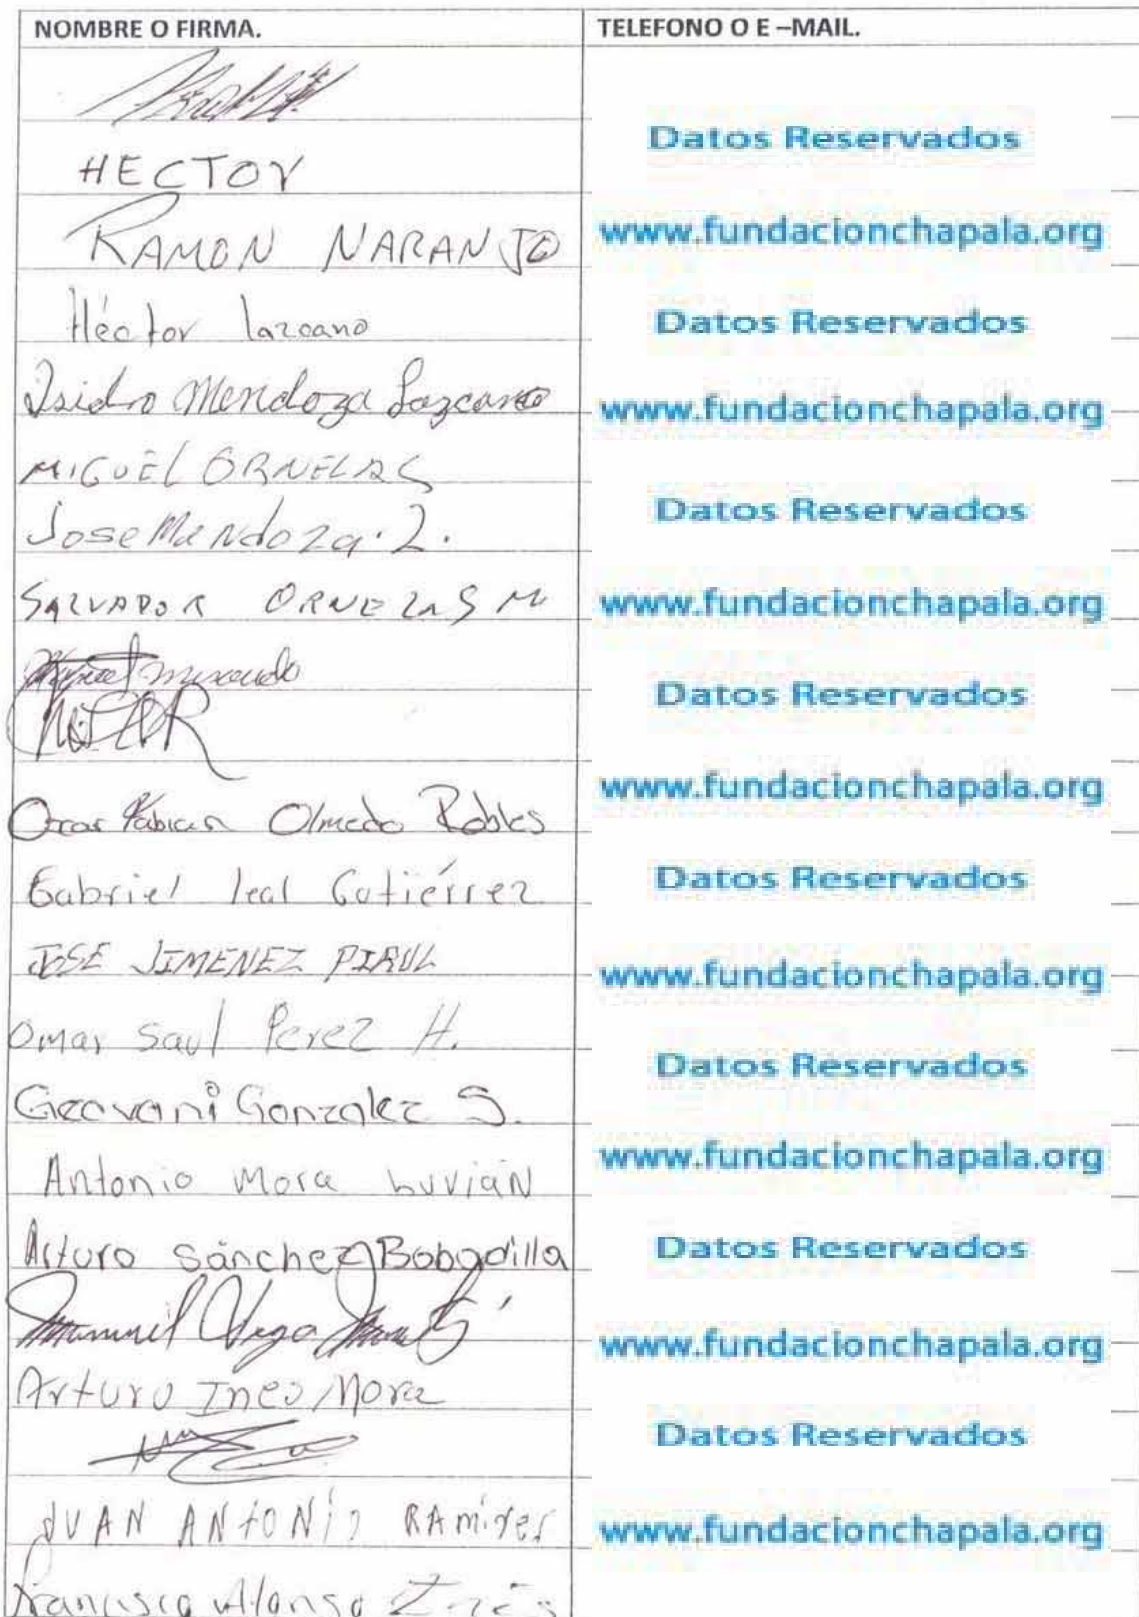 NOMBRE O FIRMA. TELEFONO O E –MAIL.
Datos Reservados
HECTOR
RAMON NARANJO www.fundacionchapala.org
Héctor lazcano Datos Reservados
Isidro Mendoza Lazcano www.fundacionchapala.org
MIGUEL ORNELAS
Jose Mendoza. L. Datos Reservados
SALVADOR ORNELAS M www.fundacionchapala.org
Datos Reservados
www.fundacionchapala.org
Oscar Fabian Olmedo Robles
Gabriel leal Gutiérrez Datos Reservados
JOSE JIMENEZ PIRUL www.fundacionchapala.org
Omar Saul Perez H. Datos Reservados
Geovani Gonzalez S.
Antonio Mora Luvian www.fundacionchapala.org
Arturo Sánchez Bobadilla Datos Reservados
Vega www.fundacionchapala.org
Arturo Ines Mora
Datos Reservados
JUAN ANtONiO RAmirez www.fundacionchapala.org
Francisco Alonso